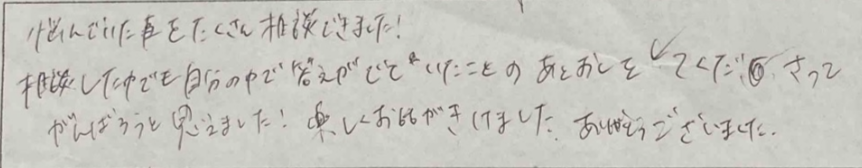 悩んでいた事をたくさん相談できました!
相談した中でも自分の中で答えがでていたことのあとおしをしてくださって
がんばろうと思えました!楽しくお話がきけました。ありがとうございました。